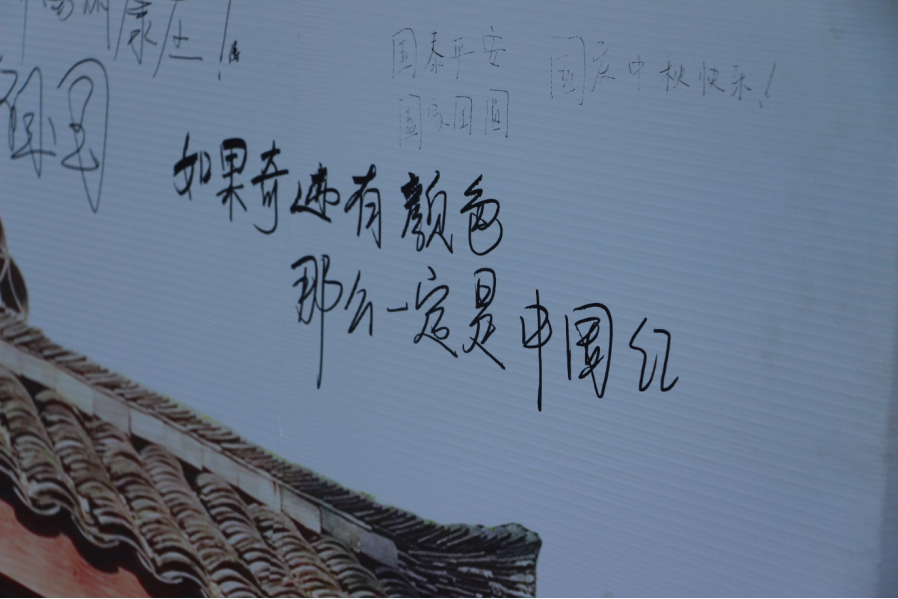 康庄！
祖国
国泰平安
阖家团圆
国庆中秋快乐！
如果奇迹有颜色
那么一定是中国红